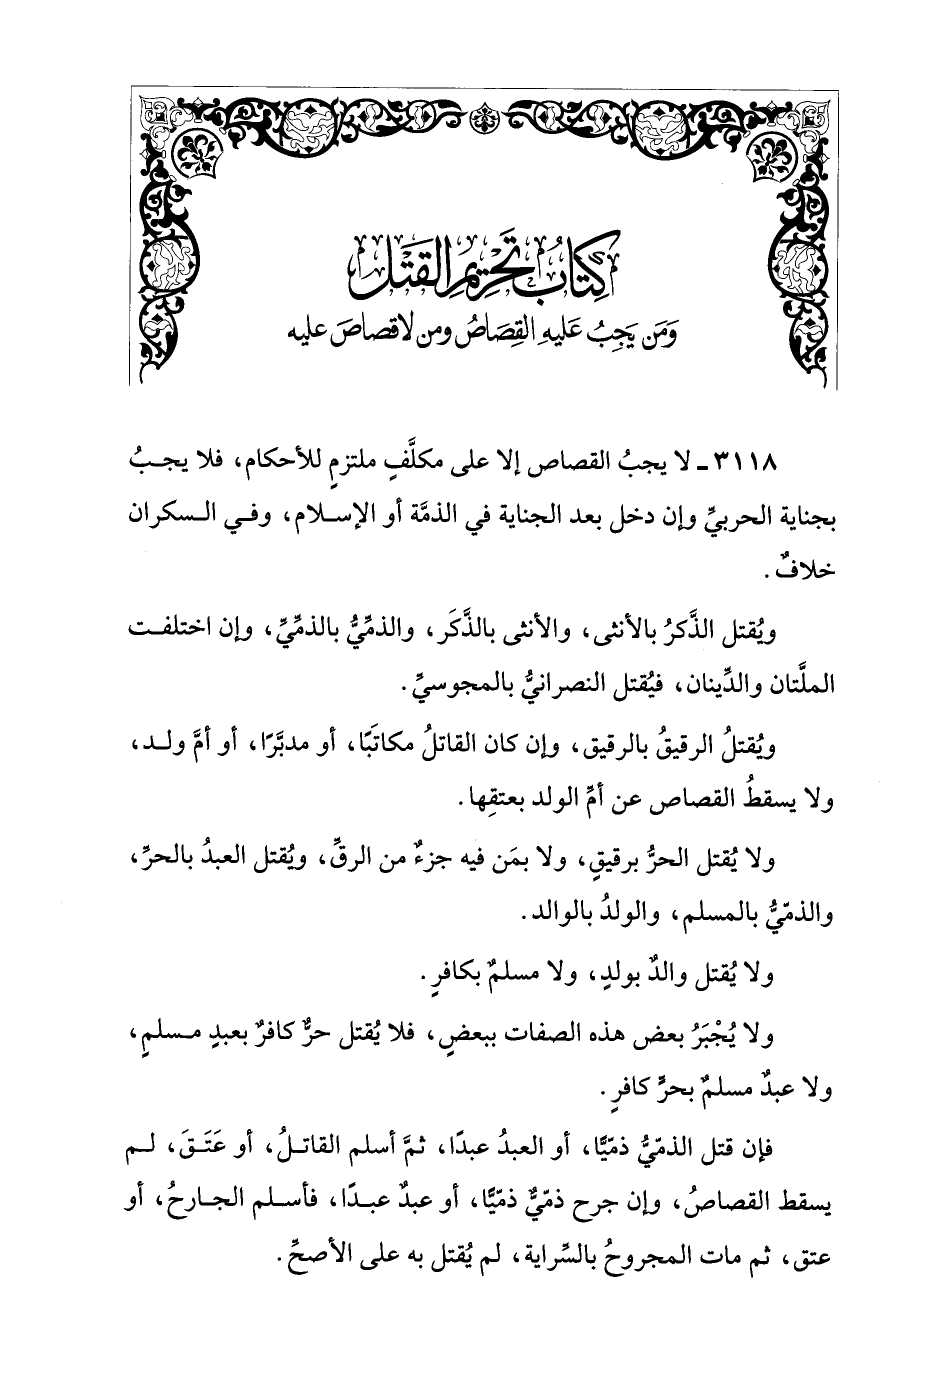 كِتَابُ تَحْرِيمِ القَتْل
وَمَن يَجِبُ عَليهِ القِصَاصُ ومن لا قصاصَ عليه
٣١١٨ ـ لا يجبُ القصاص إلا على مكلَّفٍ ملتزمٍ للأحكام، فلا يجبُ
بجناية الحربيِّ وإن دخل بعد الجناية في الذمَّة أو الإسلام، وفي السكران
خلافٌ.
ويُقتل الذَّكرُ بالأنثى، والأنثى بالذَّكَر، والذميُّ بالذمِّيِّ، وإن اختلفت
الملَّتان والدِّينان، فيُقتل النصرانيُّ بالمجوسيِّ.
ويُقتلُ الرقيقُ بالرقيق، وإن كان القاتلُ مكاتَبًا، أو مدبَّرًا، أو أمَّ ولد،
ولا يسقطُ القصاص عن أمِّ الولد بعتقِها.
ولا يُقتل الحرُّ برقيقٍ، ولا بمَن فيه جزءٌ من الرقِّ، ويُقتل العبدُ بالحرِّ،
والذمّيُّ بالمسلم، والولدُ بالوالد.
ولا يُقتل والدٌ بولدٍ، ولا مسلمٌ بكافرٍ.
ولا يُجْبَرُ بعض هذه الصفات ببعضٍ، فلا يُقتل حرٌّ كافرٌ بعبدٍ مسلمٍ،
ولا عبدٌ مسلمٌ بحرٍّ كافرٍ.
فإن قتل الذمّيُّ ذمّيًّا، أو العبدُ عبدًا، ثمَّ أسلم القاتلُ، أو عَتَقَ، لم
يسقط القصاصُ، وإن جرح ذمّيٌّ ذمّيًّا، أو عبدٌ عبدًا، فأسلم الجارحُ، أو
عتق، ثم مات المجروحُ بالسِّراية، لم يُقتل به على الأصحِّ.